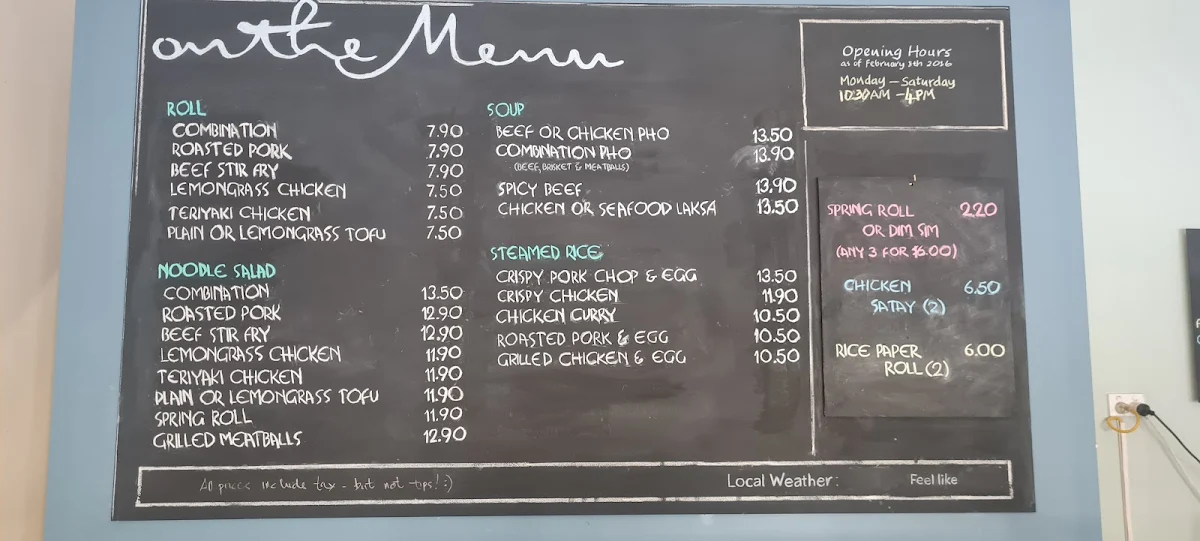 on the Menu
ROLL
COMBINATION 7.90
ROASTED PORK 7.90
BEEF STIR FRY 7.90
LEMONGRASS CHICKEN 7.50
TERIYAKI CHICKEN 7.50
PLAIN OR LEMONGRASS TOFU 7.50
NOODLE SALAD
COMBINATION 13.50
ROASTED PORK 12.90
BEEF STIR FRY 12.90
LEMONGRASS CHICKEN 11.90
TERIYAKI CHICKEN 11.90
PLAIN OR LEMONGRASS TOFU 11.90
SPRING ROLL 11.90
GRILLED MEATBALLS 12.90
SOUP
BEEF OR CHICKEN PHO 13.50
COMBINATION PHO 13.90
(BEEF, BRISKET & MEATBALLS)
SPICY BEEF 13.90
CHICKEN OR SEAFOOD LAKSA 13.50
STEAMED RICE
CRISPY PORK CHOP & EGG 13.50
CRISPY CHICKEN 11.90
CHICKEN CURRY 10.50
ROASTED PORK & EGG 10.50
GRILLED CHICKEN & EGG 10.50
Opening Hours
as of February 8th 2016
Monday - Saturday
10:30AM - 4PM
SPRING ROLL 2.20
OR DIM SIM
(ANY 3 FOR $6.00)
CHICKEN 6.50
SATAY (2)
RICE PAPER 6.00
ROLL (2)
All prices include tax - but not tips! :)
Local Weather: Feel like